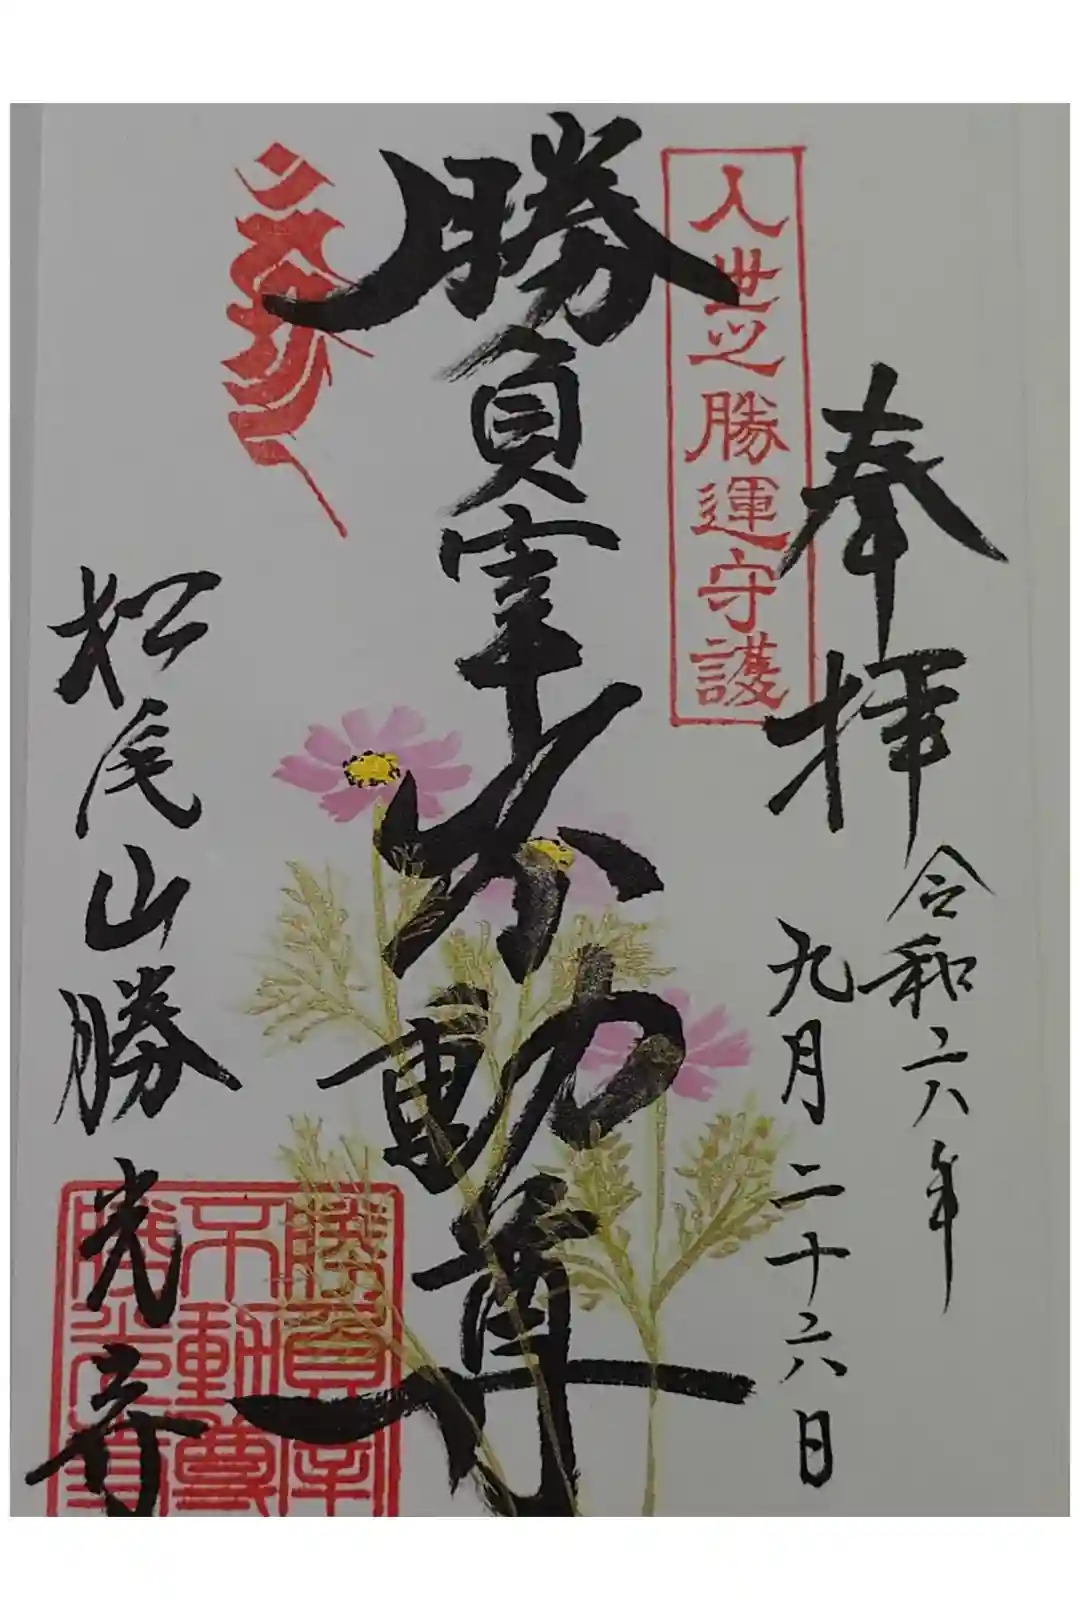 奉拝
令和六年
九月二十六日
人世之勝運守護
勝負宰不動尊
松尾山勝光寺
勝負宰
不動尊
勝光寺